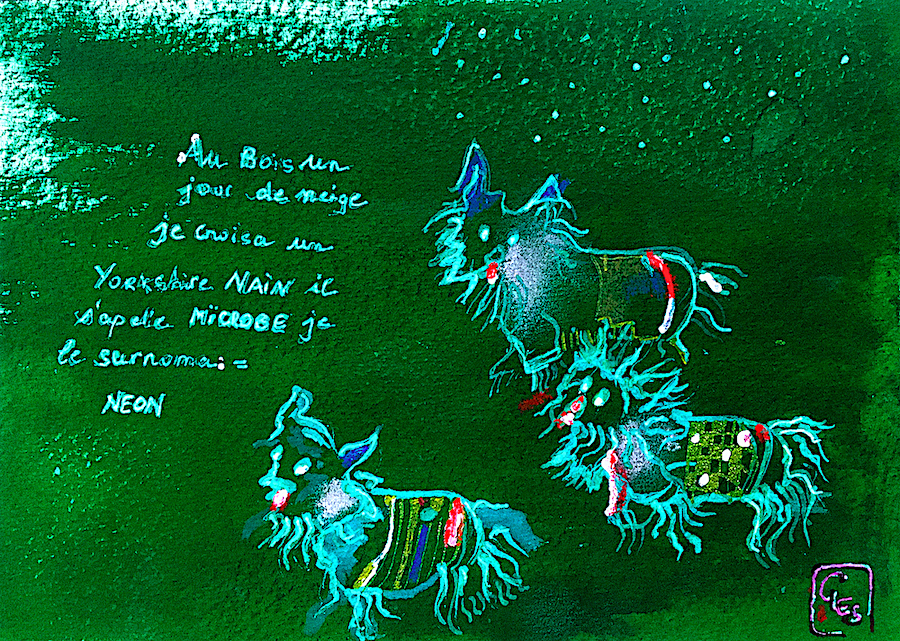 Au Bois un
jour de neige
je croisa un
YORKSHIRE NAIN il
s'apelle MiCROBE je
le surnoma :=
NEON